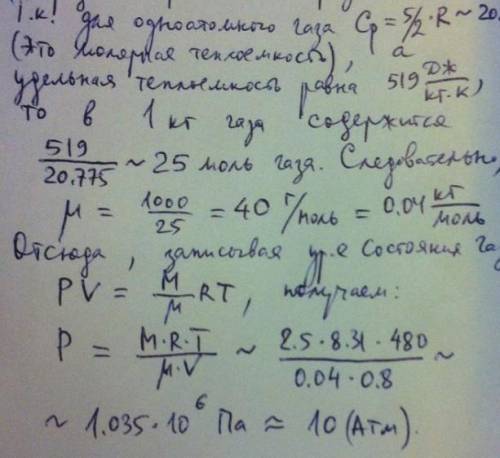 Т.к! для одноатомного газа Cp = 5/2 · R ~ 20.
(Это молярная теплоемкость), а
удельная теплоемкость равна 519 Дж/кг·К,
то в 1 кг газа содержится
519/20.775 ~ 25 моль газа. Следовательно,
μ = 1000/25 = 40 г/моль = 0.04 кг/моль
Отсюда, записывая ур.е состояния га
PV = M/μ RT, получаем:
P = M·R·T/μ·V ~ 2.5·8.31·480/0.04·0.8 ~
~ 1.035·10⁶ Па ≈ 10 (Атм).